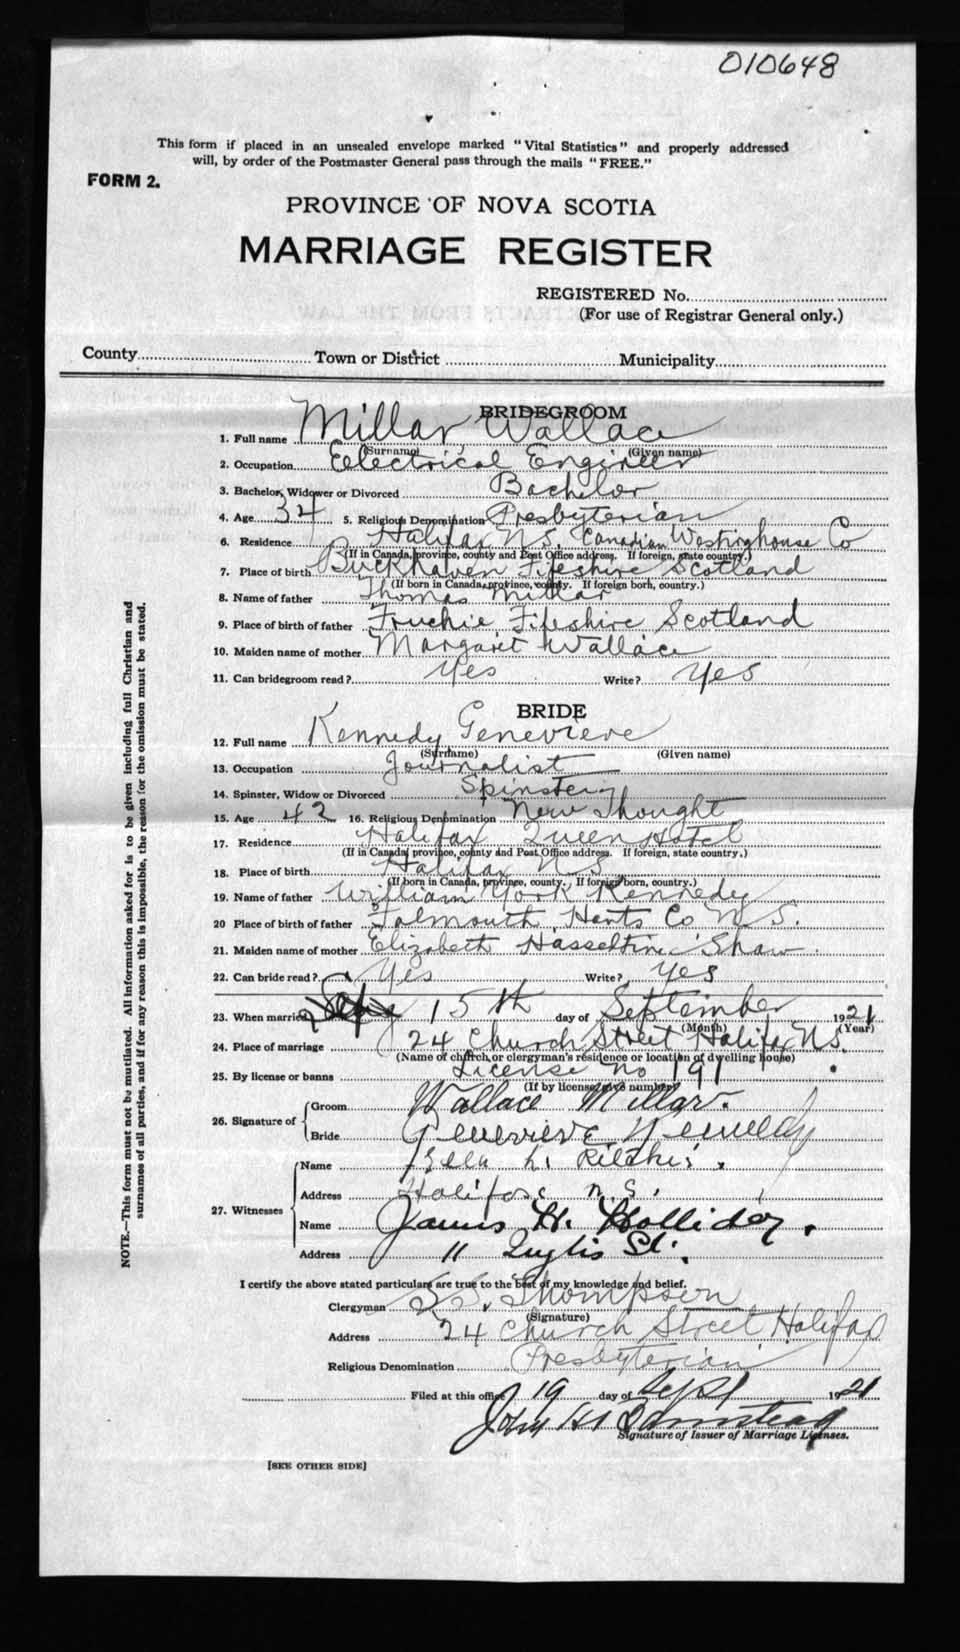 010648
This form if placed in an unsealed envelope marked "Vital Statistics" and properly addressed
will, by order of the Postmaster General pass through the mails "FREE."
FORM 2.
PROVINCE OF NOVA SCOTIA
MARRIAGE REGISTER
REGISTERED No.
(For use of Registrar General only.)
County Town or District Municipality
BRIDEGROOM
1. Full name Millar Wallace
(Surname) (Given name)
2. Occupation Electrical Engineer
3. Bachelor, Widower or Divorced Bachelor
4. Age 34 5. Religious Denomination Presbyterian
6. Residence Halifax N.S. Canadian Westinghouse Co
(If in Canada, province, county and Post Office address. If foreign, state country.)
7. Place of birth Buckhaven Fifeshire Scotland
(If born in Canada, province, county. If foreign born, country.)
8. Name of father Thomas Millar
9. Place of birth of father Fruchie Fifeshire Scotland
10. Maiden name of mother Margaret Wallace
11. Can bridegroom read? Yes Write? Yes
BRIDE
12. Full name Kennedy Genevieve
(Surname) (Given name)
13. Occupation Journalist
14. Spinster, Widow or Divorced Spinster
15. Age 42 16. Religious Denomination New Thought
17. Residence Halifax Queen Hotel
(If in Canada, province, county and Post Office address. If foreign, state country.)
18. Place of birth Halifax N S
(If born in Canada, province, county. If foreign born, country.)
19. Name of father William York Kennedy
20 Place of birth of father Falmouth Hants Co N.S.
21. Maiden name of mother Elizabeth Hasseltine Shaw
22. Can bride read? Yes Write? Yes
23. When married 15th day of September 1921
(Month) (Year)
24. Place of marriage 24 Church Street Halifax N.S.
(Name of church, or clergyman's residence or location of dwelling house)
25. By license or banns License no 191
(If by license, give number)
26. Signature of
Groom Wallace Millar.
Bride Genevieve Kennedy
27. Witnesses
Name Bella L. Ritchie.
Address Halifax N.S.
Name James H. Holliday.
Address 11 Inglis St.
I certify the above stated particulars are true to the best of my knowledge and belief.
Clergyman Thompson
(Signature)
Address 24 Church Street Halifax
Religious Denomination Presbyterian
Filed at this office 19 day of Sept 1921
John H Barnstead
Signature of Issuer of Marriage Licenses.
[SEE OTHER SIDE]
NOTE.—This form must not be mutilated. All information asked for is to be given including full Christian and
surnames of all parties, and if for any reason this is impossible, the reason for the omission must be stated.